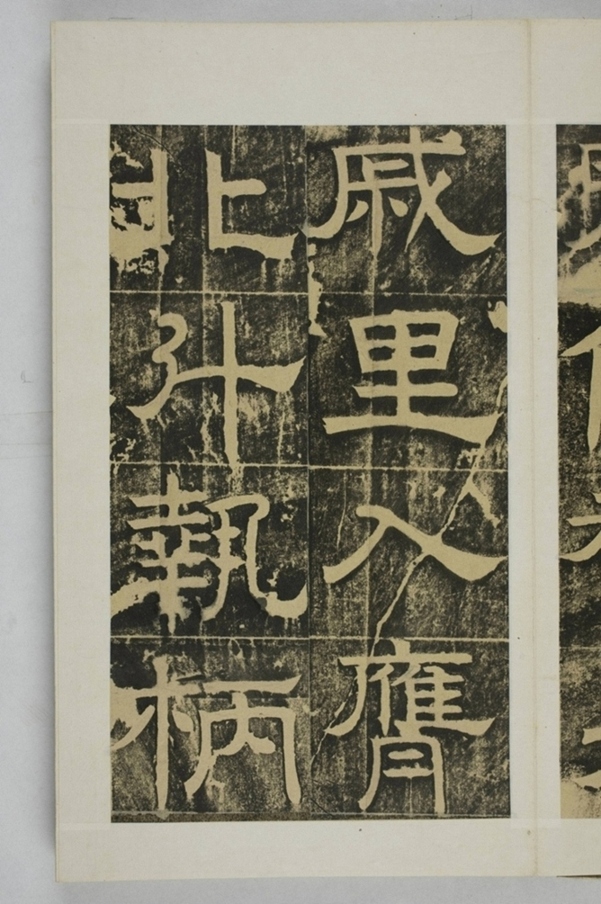 戚里入膺
北斗執柄